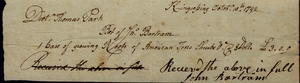 Kingsessing Octob. 10th. 1792
Doctr. Thomas Park
Bot of Jno. Bartram
1 Case of growing Roots of American Trees Shrubs &
Received the above in full
Receved the above in full
John Bartram